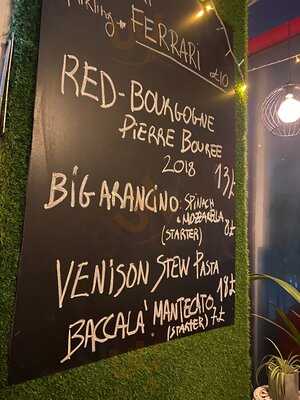 FERRARI
RED-BOURGOGNE
PIERRE BOUREE
2018 13£
BIG ARANCINO: SPINACH
& MOZZARELLA
(STARTER) 8£
VENISON STEW PASTA
18£
BACCALA' MANTECATO
(STARTER) 7£